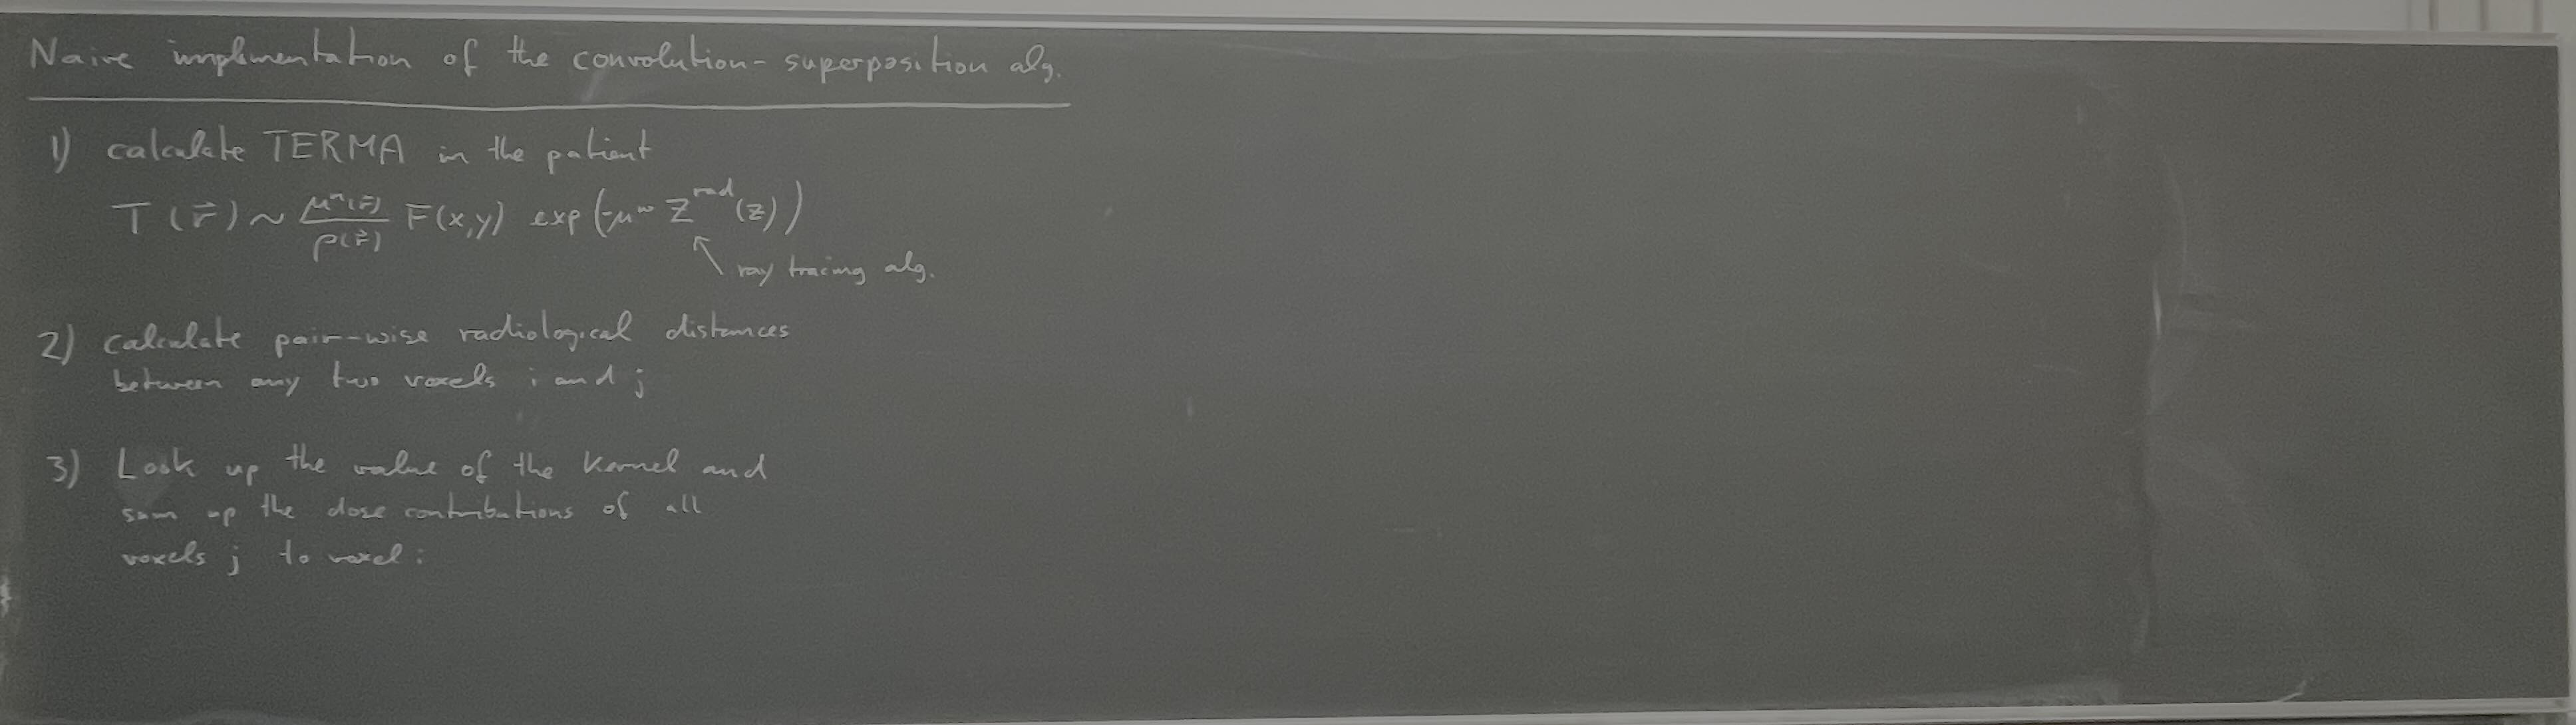 Naive implementation of the convolution-superposition alg.
1) calculate TERMA in the patient
T(r⃗) ~ μᵐ(r⃗)/ρ(r⃗) F(x,y) exp(-μʷ Zʳᵃᵈ(z))
ray tracing alg.
2) calculate pair-wise radiological distances
between any two voxels i and j
3) Look up the value of the kernel and
sum up the dose contributions of all
voxels j to voxel i